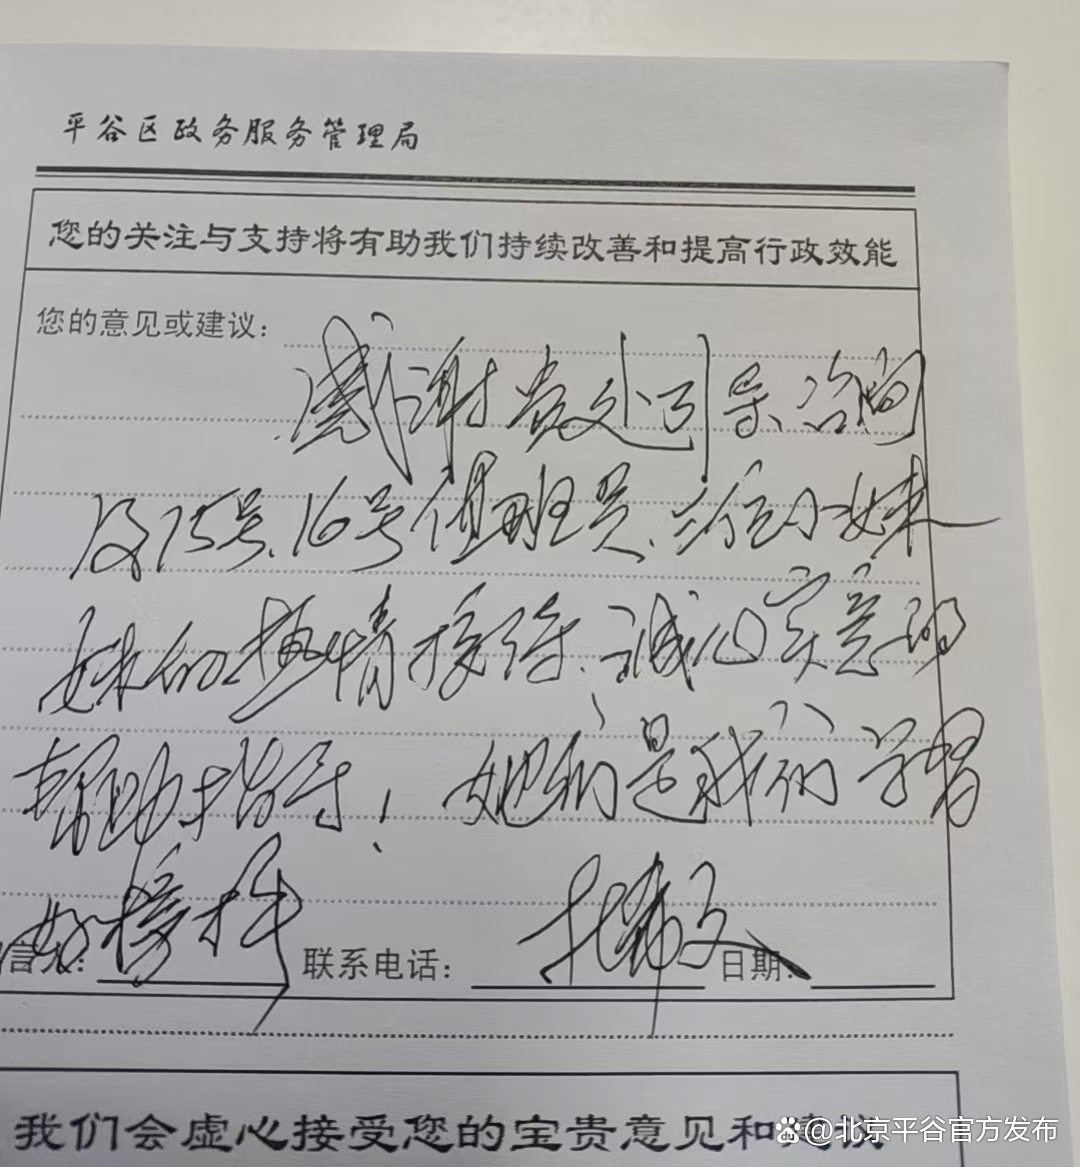 平谷区政务服务管理局
您的关注与支持将有助我们持续改善和提高行政效能
您的意见或建议:
感谢贵处引导、咨询
及15号、16号值班员、三位小妹
妹的热情接待、诚心实意的
帮助指导! 她们是我们学习
好榜样
信人: 联系电话: 日期:
我们会虚心接受您的宝贵意见和建议
@北京平谷官方发布